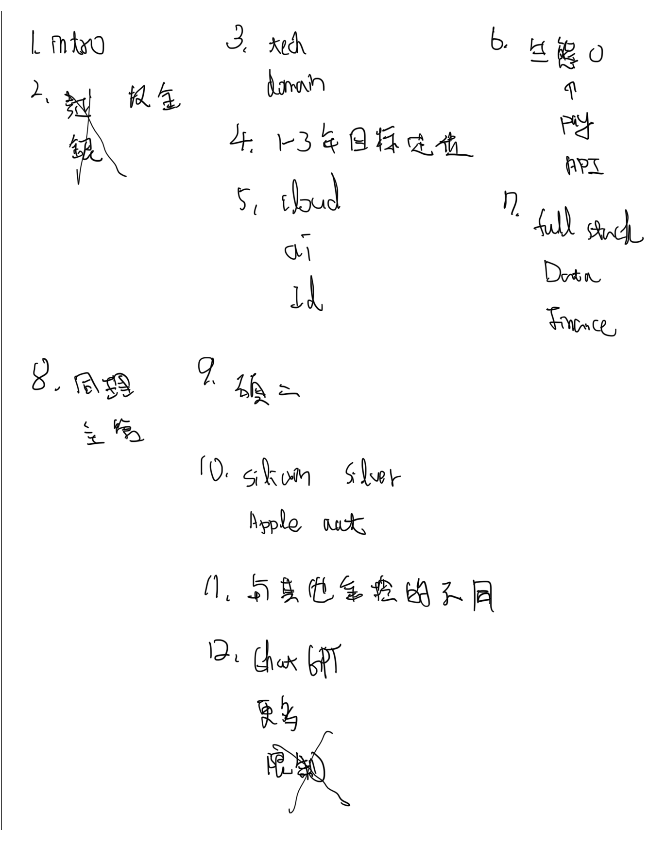 1. intro
2.
3. tech
domain
4. 1-3年目标定位
5. cloud
ai
Id
6. 生態
pay
API
7. full stack
Data
Finance
8.
主管
9. 碩二
10. silicon silver
Apple
11. 与其他金控的不同
12. ChatGPT
更多
限制